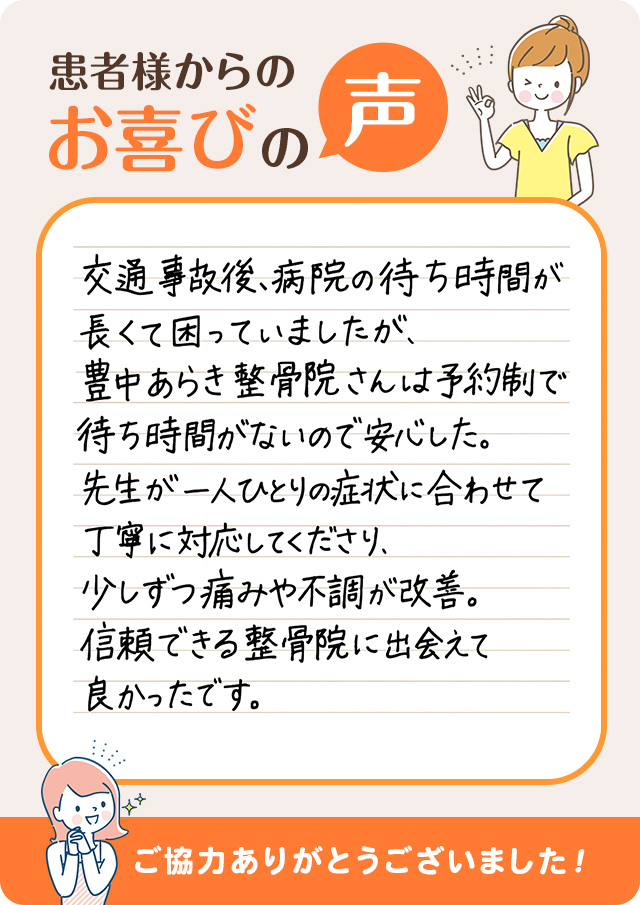 患者様からの
お喜びの声
交通事故後、病院の待ち時間が
長くて困っていましたが、
豊中あらき整骨院さんは予約制で
待ち時間がないので安心した。
先生が一人ひとりの症状に合わせて
丁寧に対応してくださり、
少しずつ痛みや不調が改善。
信頼できる整骨院に出会えて
良かったです。
ご協力ありがとうございました!